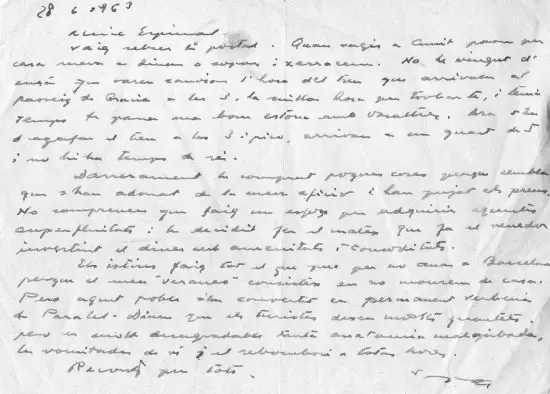 28 6 1963
Amic Espinal
Vaig rebre la postal. Quan vagis a Cunit passa per
casa meva a dinar o sopar i xerrarem. No he vingut d'
ençà que varen canviar l'hora del tren que arribava al
passeig de Gràcia a les 3, la millor hora per trobar-te, i tenia
temps de passar una bona estona amb vosaltres. Ara s'ha
d'agafar el tren a les 3 i pico, arribava a un quart de 5
i no hi ha temps de res.
Darrerament he comprat poques coses perquè sembla
que s'han adonat de la meva afició i han pujat els preus.
No comprenen que faig un esforç per adquirir aquestes
superfluitats i he decidit fer el mateix que fa el venedor
invertint el diners amb amenitats i comoditats.
Els estius faig tot el que puc per no anar a Barcelona
perquè el meu "veraneo" consisteix en no moure'm de casa.
Però aquest poble s'ha convertit en permanent verbena
de Paralel. Diuen que els turistes deixen molts quartets,
però es molt desagradable tanta anatomia malgirbada,
les vomitades de vi i el rebombori a totes hores.
Records per tots.